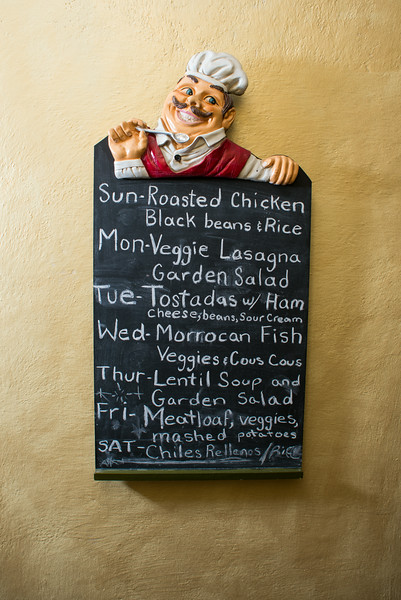 Sun-Roasted Chicken
Black beans & Rice
Mon-Veggie Lasagna
Garden Salad
Tue-Tostadas w/ Ham
cheese, beans, Sour Cream
Wed-Morrocan Fish
Veggies & Cous Cous
Thur-Lentil Soup and
Garden Salad
Fri-Meatloaf, veggies,
mashed potatoes
SAT-Chiles Rellenos/Rice